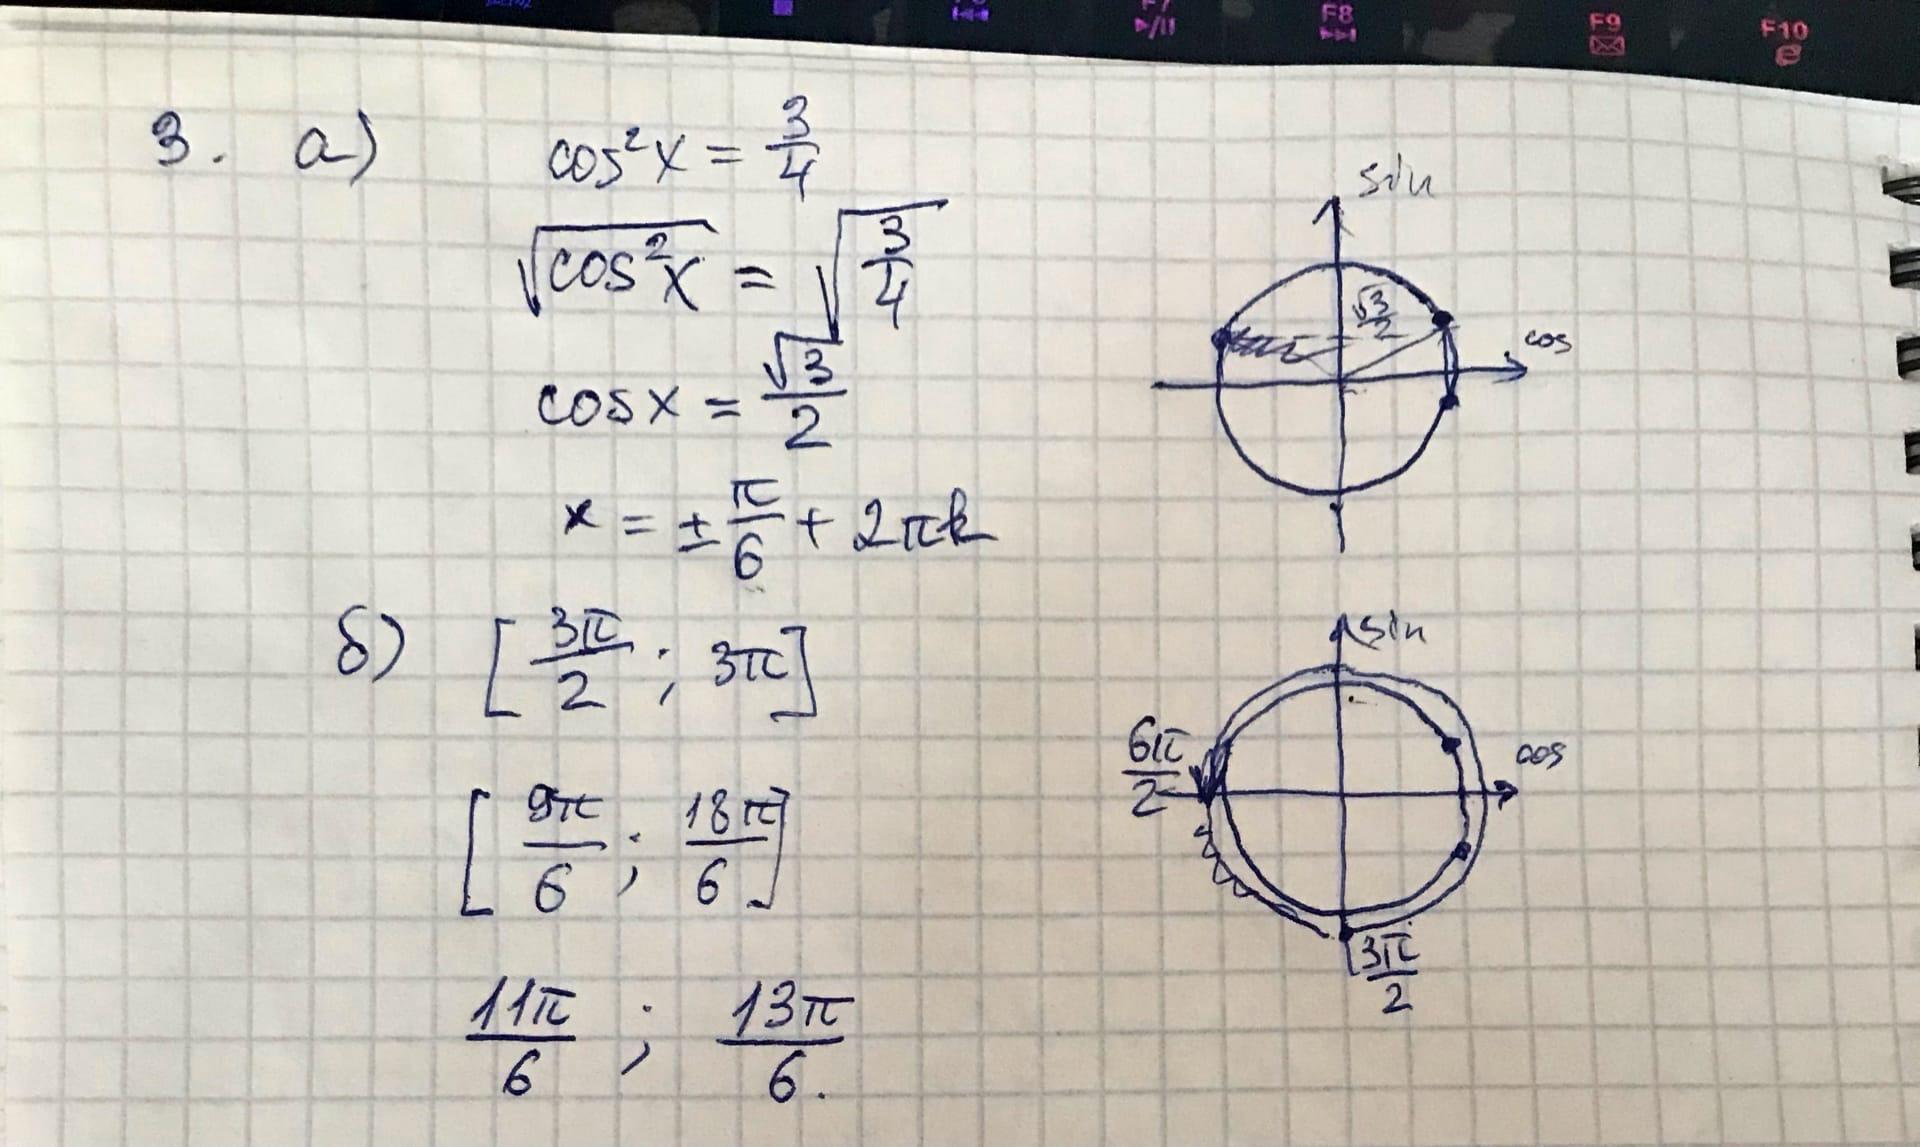 F7
F8
F9
F10
3. а) cos²x = 3/4
√(cos²x) = √(3/4)
cos x = √3/2
x = ± π/6 + 2πk
sin
√3/2
cos
б) [3π/2 ; 3π]
[9π/6 ; 18π/6]
11π/6 ; 13π/6.
sin
6π/2
cos
3π/2